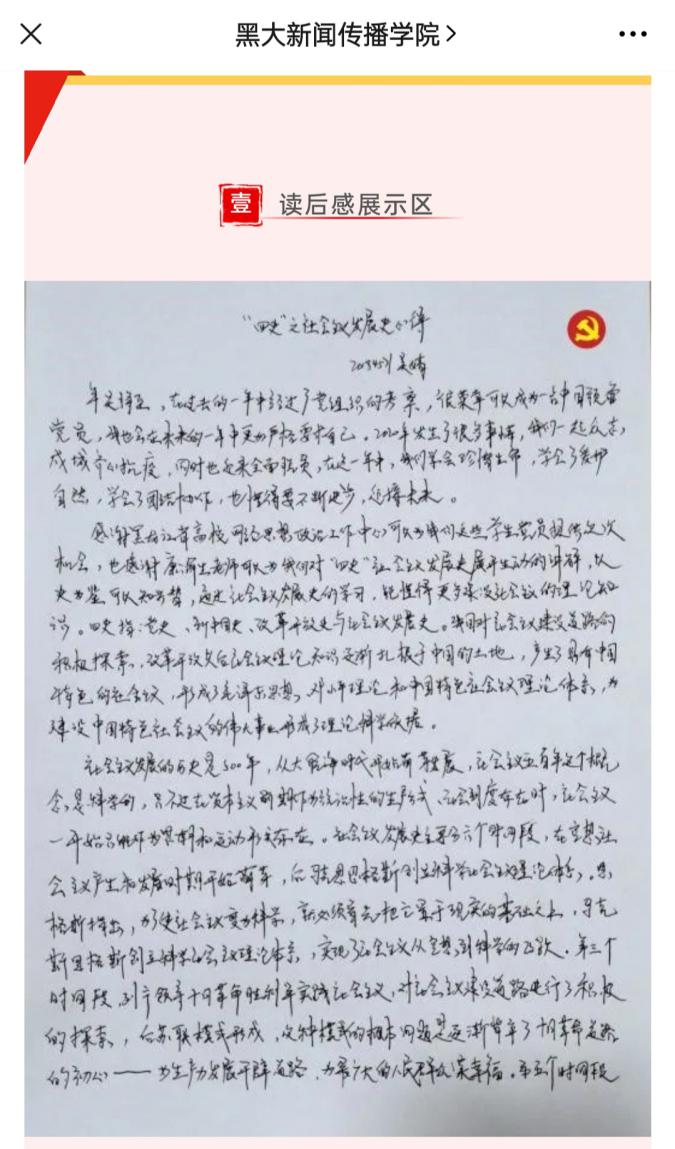 黑大新闻传播学院
壹 读后感展示区
“四史”之社会主义发展史心得
年关将至，在过去的一年中经过了党组织的考察，很荣幸可以成为一名中国预备
党员，我也会在未来的一年中更加严格要求自己。2020年发生了很多事情，我们一起众志
成城齐心抗疫，同时也迎来全面脱贫，在这一年中，我们学会珍惜生命，学会了爱护
自然，学会了团结协作，也懂得要不断进步，迎接未来。
感谢黑龙江省高校网络思想政治工作中心可以为我们这些学生党员提供这次
机会，也感谢老师可以为我们对“四史”社会主义发展史展开生动的讲解，以
史为鉴可以知兴替，通过社会主义发展史的学习，能懂得更多来源社会主义的理论知
识。四史指：党史、新中国史、改革开放史与社会主义发展史。我国对社会主义建设道路的
积极探索，改革开放以后社会主义理论知识逐渐扎根于中国的土地，产生了具有中国
特色的社会主义，形成了毛泽东思想、邓小平理论和中国特色社会主义理论体系，为
建设中国特色社会主义的伟大事业形成了理论科学依据。
社会主义发展的历史是500年，从大航海时代开始有程度，社会主义五百年这个概
念是科学的，只不过在资本主义前期作为统治性的生产方式、社会制度存在时，社会主义
一开始只能作为思潮和运动形式存在。社会主义发展史主要分六个时间段，在空想社
会主义产生和发展时期开始萌芽，后马克思恩格斯创立科学社会主义理论体系。恩
格斯指出，为了使社会主义变为科学，就必须首先把它置于现实的基础之上，马克
斯恩格斯创立科学社会主义理论体系，实现了社会主义从空想到科学的飞跃。第三个
时间段，列宁领导十月革命胜利并实践社会主义，对社会主义建设道路进行了积极
的探索，后苏联模式形成，这种模式的根本问题是逐渐背弃了十月革命道路
的初心——为生产力发展开辟道路，为最广大的人民群众谋幸福。第五个时间段